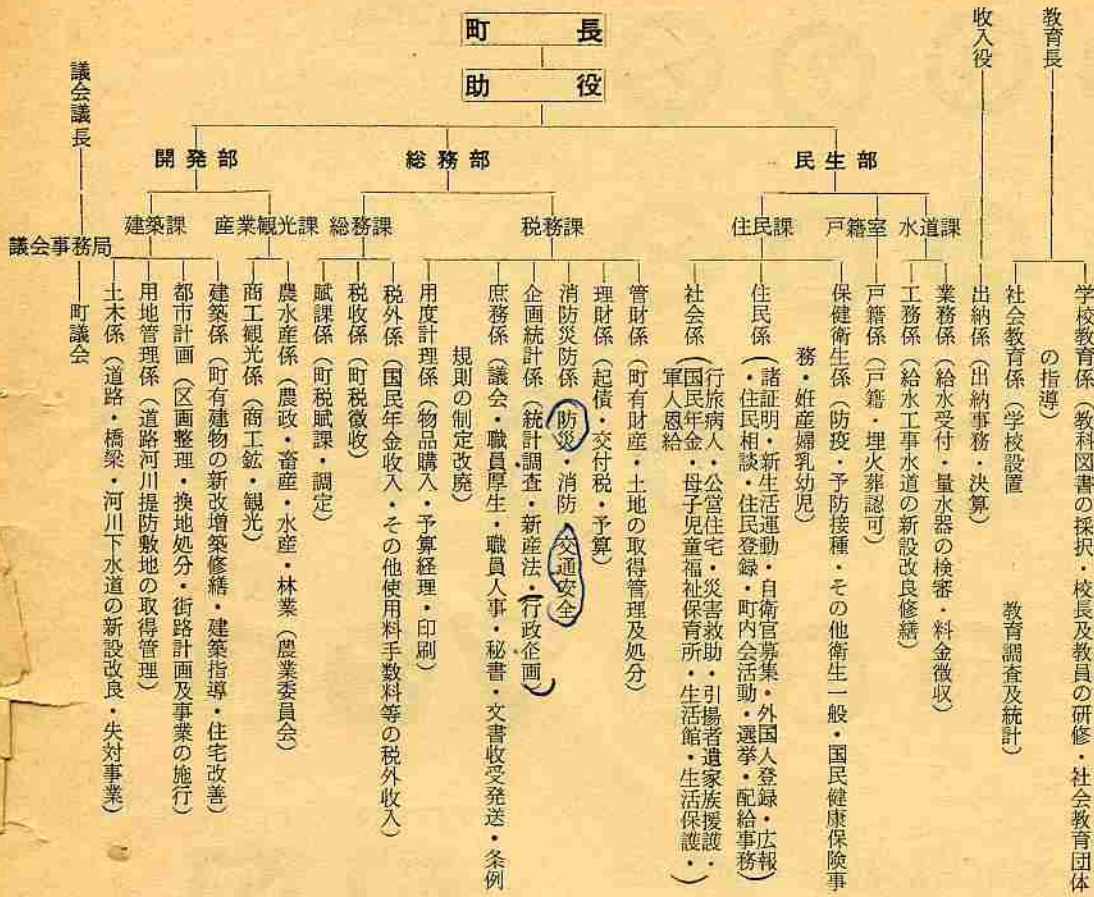 町長
助役
教育長
収入役
議会議長
民生部
総務部
開発部
水道課
戸籍室
住民課
税務課
総務課
産業観光課
建築課
議会事務局
学校教育係（教科図書の採択・校長及教員の研修・社会教育団体
の指導）
社会教育係（学校設置　教育調査及統計）
出納係（出納事務・決算）
業務係（給水受付・量水器の検審・料金徴収）
工務係（給水工事水道の新設改良修繕）
戸籍係（戸籍・埋火葬認可）
保健衛生係（防疫・予防接種・その他衛生一般・国民健康保険事
務・姙産婦乳幼児）
住民係（諸証明・新生活運動・自衛官募集・外国人登録・広報
・住民相談・住民登録・町内会活動・選挙・配給事務）
社会係（行旅病人・公営住宅・災害救助・引揚者遺家族援護・
国民年金・母子児童福祉保育所・生活館・生活保護・
軍人恩給）
管財係（町有財産・土地の取得管理及処分）
理財係（起債・交付税・予算）
消防災防係（防災・消防　交通安全
企画統計係（統計調査・新産法・行政企画）
庶務係（議会・職員厚生・職員人事・秘書・文書収受発送・条例
規則の制定改廃）
用度計理係（物品購入・予算経理・印刷）
税外係（国民年金収入・その他使用料手数料等の税外収入）
税収係（町税徴収）
賦課係（町税賦課・調定）
農水産係（農政・畜産・水産・林業（農業委員会）
商工観光係（商工鉱・観光）
建築係（町有建物の新改増築修繕・建築指導・住宅改善）
都市計画（区画整理・換地処分・街路計画及事業の施行）
用地管理係（道路河川提防敷地の取得管理）
土木係（道路・橋梁・河川下水道の新設改良・失対事業）
町議会